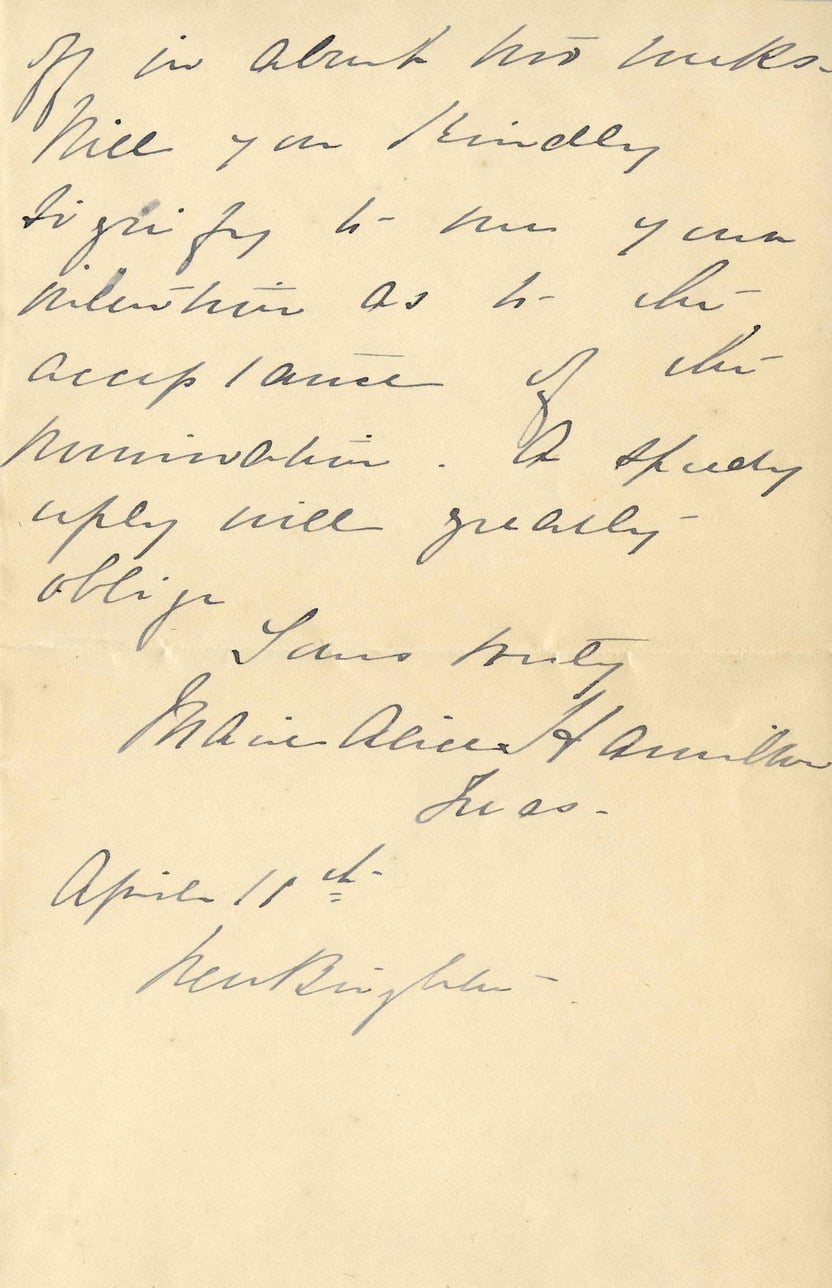 off in about two weeks-
Will you kindly
signify to me your
intention as to the
acceptance of the
nomination. A speedy
reply will greatly
oblige
Yours truly
Marie Alice Hamilton
Treas-
April 11th
New Brighton-